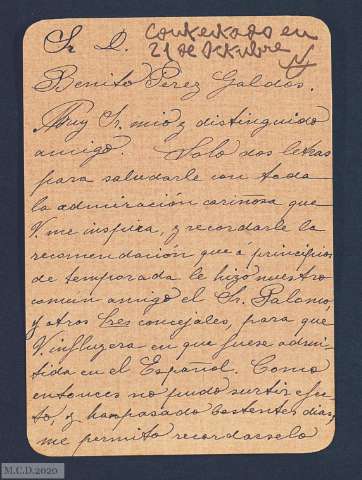 Sr. D. Contestado en
21 de Octubre
Benito Pérez Galdós.
Muy Sr. mío y distinguido
amigo. Solo dos letras
para saludarle con toda
la admiración cariñosa que
V. me inspira, y recordarle la
recomendación que á principios
de temporada le hizo nuestro
común amigo el Sr. Palomo,
y otros tres concejales, para que
V. influyera en que fuese admi-
tida en el Español. Como
entonces no pudo surtir efec-
to, y han pasado bastantes dias,
me permito recordarselo
M.C.D. 2020